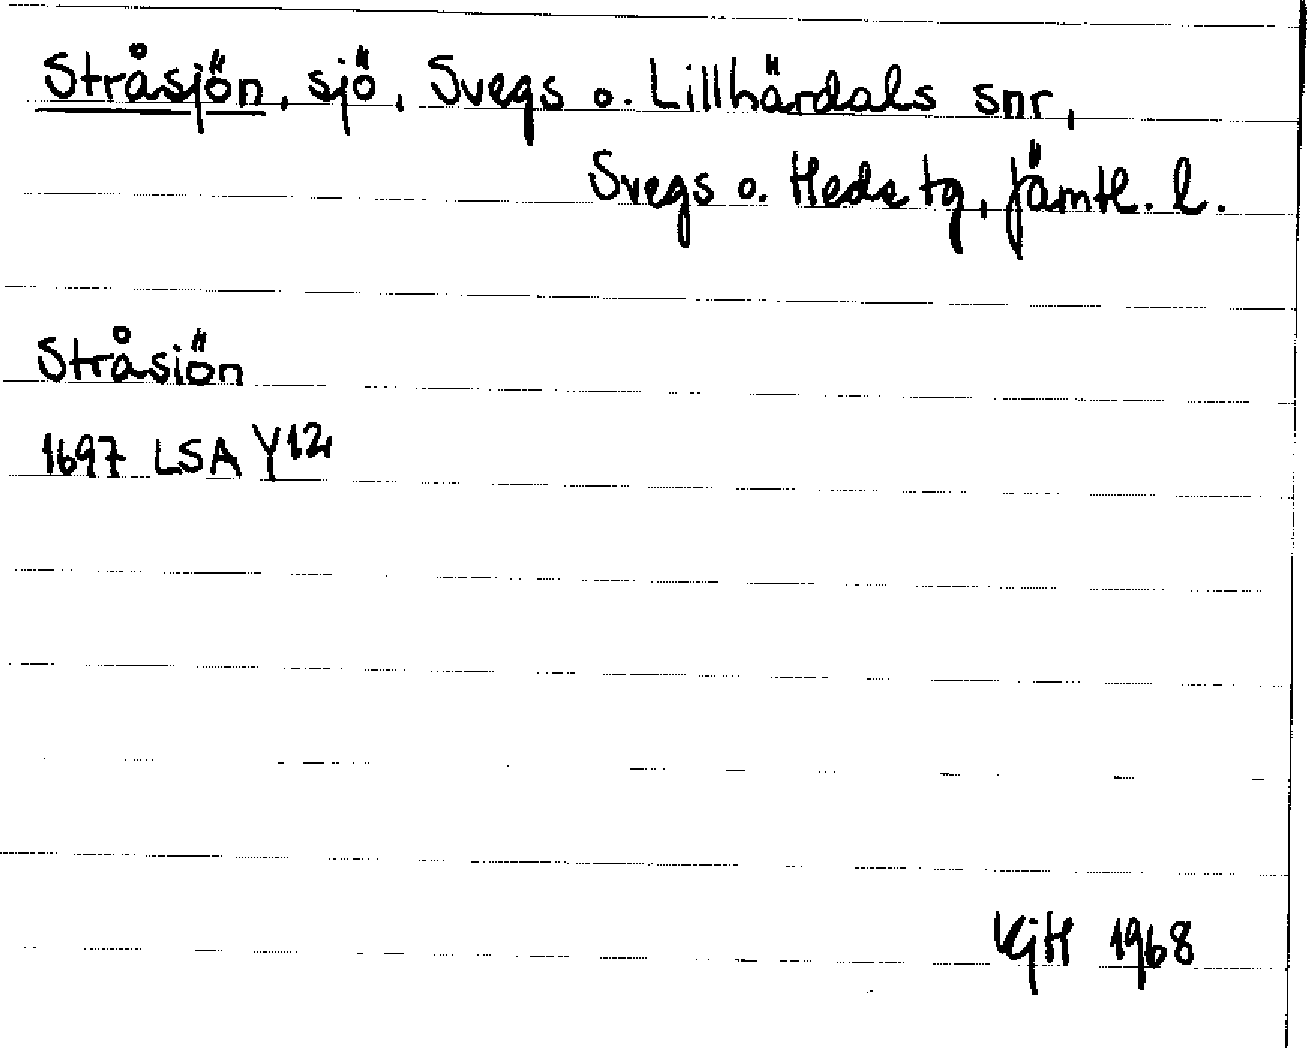 Stråsjön, sjö, Svegs o. Lillhärdals snr,
Svegs o. Heds tg, Jämtl. l.
Stråsiön
1697 LSA Y12
1968